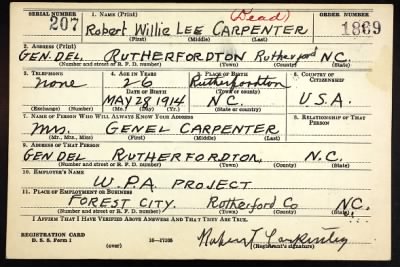 SERIAL NUMBER 1. NAME (Print) (Dead) ORDER NUMBER
207 Robert Willie LEE CARPENTER 1869
(First) (Middle) (Last)
2. ADDRESS (Print)
GEN. DEL. RUTHERFORDTON Rutherford N.C.
(Number and street or R. F. D. number) (Town) (County) (State)
3. TELEPHONE 4. AGE IN YEARS 5. PLACE OF BIRTH 6. COUNTRY OF CITIZENSHIP
none 26 Rutherfordton
DATE OF BIRTH (Town or county)
MAY 28 1914 N.C. U.S.A.
(Exchange) (Number) (Mo.) (Day) (Yr.) (State or country)
7. NAME OF PERSON WHO WILL ALWAYS KNOW YOUR ADDRESS 8. RELATIONSHIP OF THAT PERSON
Mrs. GENEL CARPENTER
(Mr., Mrs., Miss) (First) (Middle) (Last)
9. ADDRESS OF THAT PERSON
GEN DEL RUTHERFORDTON, N.C.
(Number and street or R. F. D. number) (Town) (County) (State)
10. EMPLOYER'S NAME
W.P.A. PROJECT
11. PLACE OF EMPLOYMENT OR BUSINESS
FOREST CITY. Rutherford Co N.C.
(Number and street or R. F. D. number) (Town) (County) (State)
I AFFIRM THAT I HAVE VERIFIED ABOVE ANSWERS AND THAT THEY ARE TRUE.
REGISTRATION CARD
D. S. S. Form 1 (over) 16—17105 (Registrant's signature)